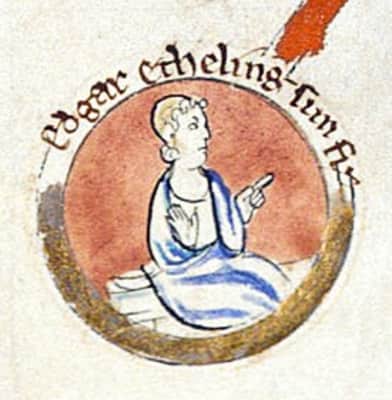 Edgar Etheling sun fiz